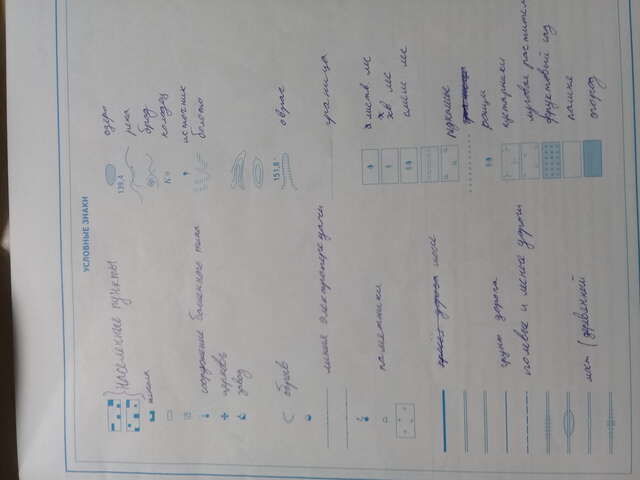 УСЛОВНЫЕ ЗНАКИ
населенные пункты
школа
сооружение башенного типа
церковь
завод
обрыв
линия электропередачи
памятники
дорога шоссе
грунт дорога
полевые и лесные дороги
мост (деревянный
озеро
139,4
река
брод
К колодец
источник
болото
151,8 овраг
граница
листв лес
хв лес
смеш лес
редколесье
рощи
кустарники
луговая растител
фруктовый сад
пашня
огород